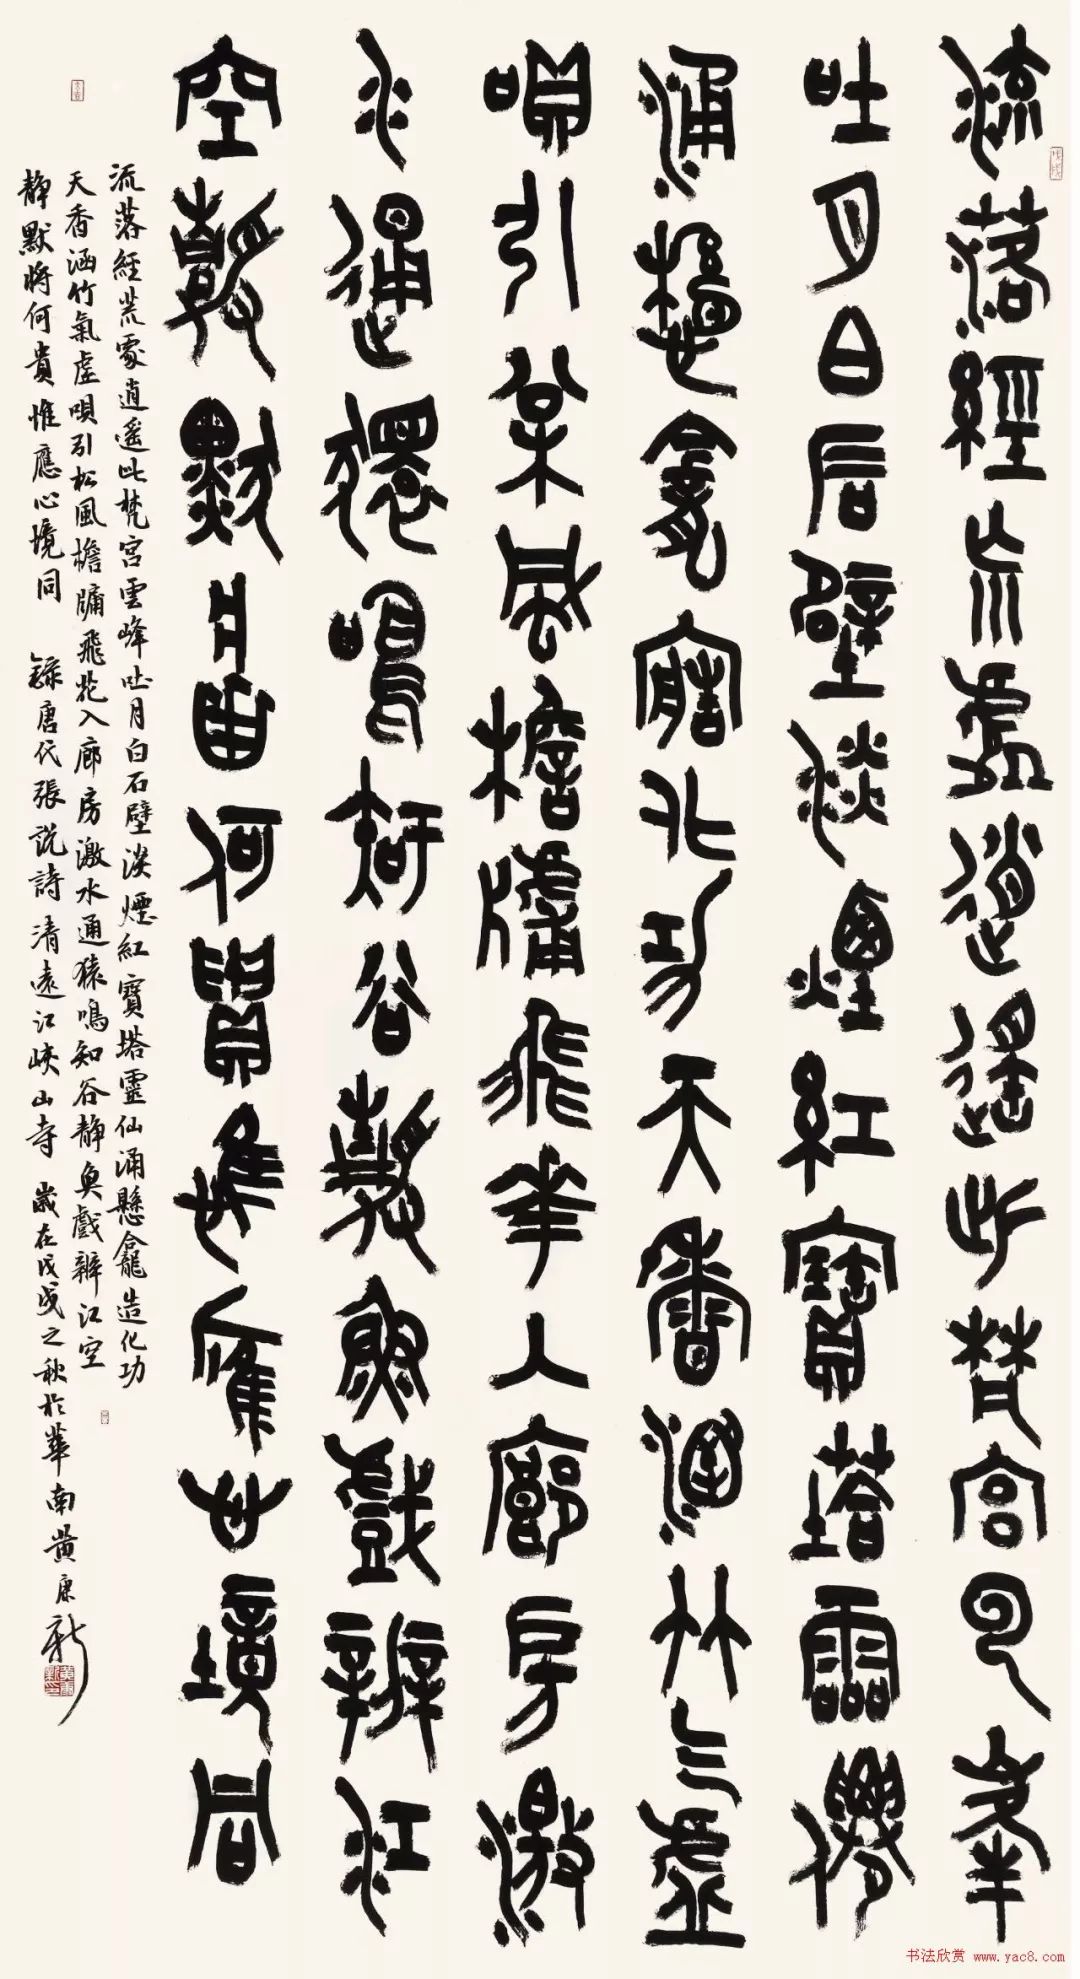 流落經荒處逍遙此梵宮雲峰
吐月白石壁淡煙紅寶塔靈仙
涌懸龕造化功天香涵竹氣虛
唄引松風檐牖飛華入廊房激
水通猿鳴知谷靜魚戲辨江
空靜默將何貴惟應心境同
流落經荒處逍遙此梵宮雲峰吐月白石壁淡煙紅寶塔靈仙涌懸龕造化功
天香涵竹氣虛唄引松風檐牖飛花入廊房激水通猿鳴知谷静魚戲辨江空
静默將何貴惟應心境同 錄唐代張說詩清遠江峽山寺 歲在戊戌之秋於華南黃康新
书法欣赏 www.yac8.com